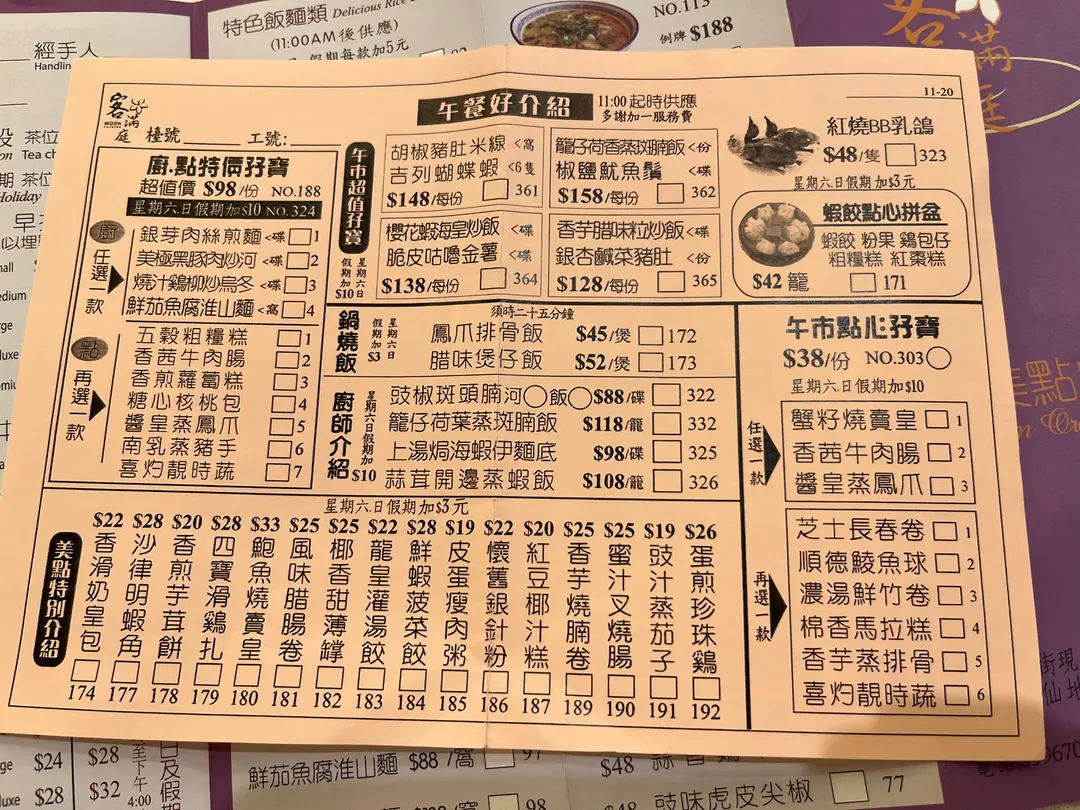 經手人
Handlin
特色飯麵類 Delicious Rice
(11:00AM後供應)
假期每款加5元
NO.113
例牌 $188
客滿庭
茶位
Tea ch
茶位
Holiday
11-20
客滿庭
MOON
檯號 工號:
午餐好介紹
11:00 起時供應
多謝加一服務費
廚.點特價孖寶
超值價 $98/份 NO.188
星期六.日假期加$10 NO.324
廚
任選一款
銀芽肉絲煎麵<碟 1
美極黑豚肉炒河<碟 2
燒汁鷄柳炒烏冬<碟 3
鮮茄魚腐淮山麵<窩 4
點
再選一款
五穀粗糧糕 1
香茜牛肉腸 2
香煎蘿蔔糕 3
糖心核桃包 4
醬皇蒸鳳爪 5
南乳蒸豬手 6
喜灼靚時蔬 7
午市超值孖寶
星期六.日
假期加$10
胡椒豬肚米線<窩
吉列蝴蝶蝦<6隻
$148/每份 361
籠仔荷香蒸斑腩飯<份
椒鹽魷魚鬚 <碟
$158/每份 362
櫻花蝦海皇炒飯<碟
脆皮咕嚕金薯 <碟
$138/每份 364
香芋腊味粒炒飯<碟
銀杏鹹菜豬肚 <份
$128/每份 365
紅燒BB乳鴿
$48/隻 323
星期六.日假期加$3元
蝦餃點心拼盆
蝦餃 粉果 鷄包仔
粗糧糕 紅棗糕
$42 籠 171
鍋燒飯
星期六.日
假期加$3
須時二十五分鐘
鳳爪排骨飯 $45/煲 172
腊味煲仔飯 $52/煲 173
廚師介紹
星期六.日假期加$10
豉椒斑頭腩河○飯○$88/碟 322
籠仔荷葉蒸斑腩飯 $118/籠 332
上湯焗海蝦伊麵底 $98/碟 325
蒜茸開邊蒸蝦飯 $108/籠 326
午市點心孖寶
$38/份 NO.303○
星期六.日假期加$10
任選一款
蟹籽燒賣皇 1
香茜牛肉腸 2
醬皇蒸鳳爪 3
再選一款
芝士長春卷 1
順德鯪魚球 2
濃湯鮮竹卷 3
棉香馬拉糕 4
香芋蒸排骨 5
喜灼靚時蔬 6
美點特別介紹
星期六.日假期加$3元
$22 香滑奶皇包 174
$28 沙律明蝦角 177
$20 香煎芋茸餅 178
$28 四寶滑鷄扎 179
$33 鮑魚燒賣皇 180
$25 風味腊腸卷 181
$25 椰香甜薄罉 182
$22 龍皇灌湯餃 183
$28 鮮蝦菠菜餃 184
$19 皮蛋瘦肉粥 185
$22 懷舊銀針粉 186
$20 紅豆椰汁糕 187
$25 香芋燒腩卷 189
$25 蜜汁叉燒腸 190
$19 豉汁蒸茄子 191
$26 蛋煎珍珠鷄 192
$24 $28
$28 $32
至下午4:00
鮮茄魚腐淮山麵 $88 /窩 97
98
$48
$48 豉味虎皮尖椒 77